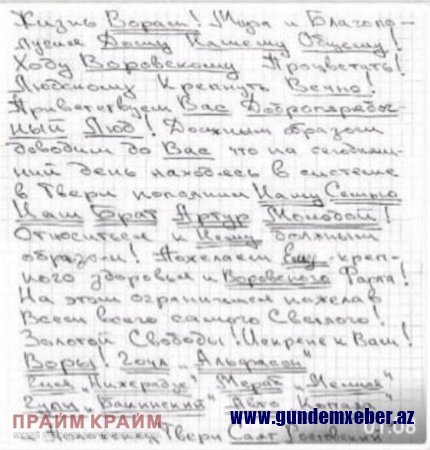 Жизнь Ворам! Мира и Благопо-
лучия Дому Нашему Общему!
Ходу Воровскому Процветать!
Людскому Крепнуть Вечно!
Приветствуем Вас Добропорядоч-
ный Люд! Должным образом
доводим до Вас что на сегодняш-
ний день находясь в системе
в Твери пополнил Нашу Семью
Наш Брат Артур Молодой!
Относиться к Нему должным
образом! Пожелаем Ему креп-
кого здоровья и Воровского Фарта!
На этом ограничимся пожелав
Всем всего самого Светлого!
Золотой Свободы! Искренне к Вам!
Воры!
"Мераб"
"Бакинский" "Авто
Твери
ПРАЙМ КРАЙМ
www.gundemxeber.az